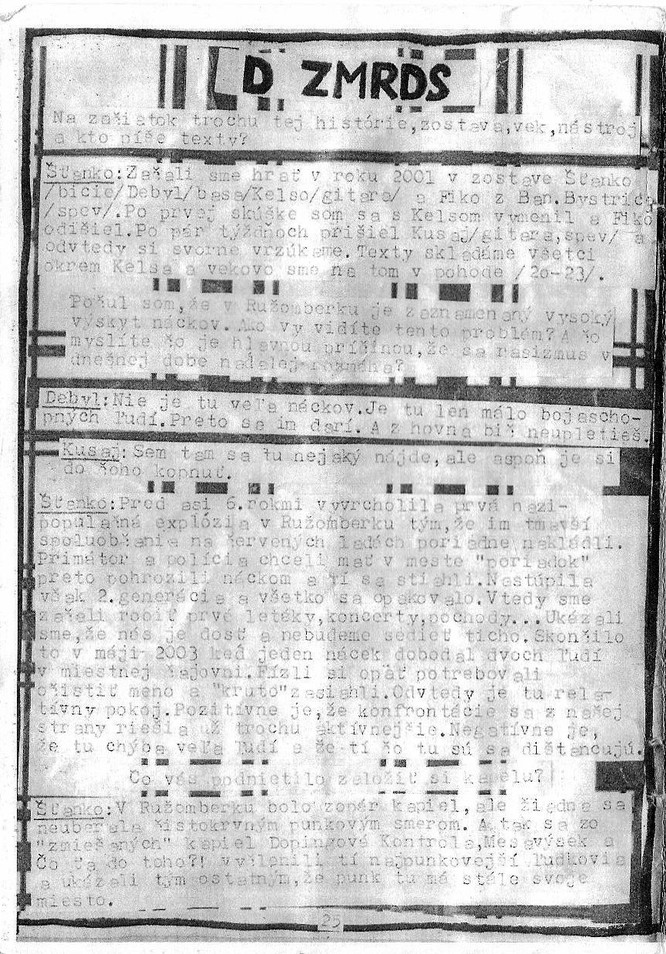 D ZMRDS
Na začiatok trochu tej histórie,zostava,vek,nástroj
a kto píše texty?
Šťanko:Začali sme hrať v roku 2001 v zostave Šťanko
/bicie/Debyl/basa/Kelso/gitara/ a Fiko z Ban.Bystrice
/spev/.Po prvej skúške som sa s Kelsom vymenil a Fiko
odišiel.Po pár týždňoch prišiel Kusaj/gitara,spev/ a
odvtedy si svorne vrzúkame.Texty skladáme všetci
okrem Kelsa a vekovo sme na tom v pohode /20-23/.
Počul som,že v Ružomberku je zaznamenaný vysoký
výskyt náckov.Ako vy vidíte tento problém?A čo
myslíte čo je hlavnou príčinou,že sa rasizmus v
dnešnej dobe naďalej rozmáha?
Debyl:Nie je tu veľa náckov.Je tu len málo bojascho-
pných ľudí.Preto sa im darí.A z hovna bič neupletieš.
Kusaj:Sem tam sa tu nejaký nájde,ale aspoň je si
do čoho kopnuť.
Šťanko:Pred asi 6.rokmi vyvrcholila prvá nazi-
populačná explózia v Ružomberku tým,že im tmavší
spoluobčania na červených ladách poriadne nakládli.
Primátor a polícia chceli mať v meste "poriadok"
preto pohrozili náckom a tí sa stiahli.Nastúpila
však 2.generácia a všetko sa opakovalo.Vtedy sme
začali robiť prvé letáky,koncerty,pochody...Ukázali
sme,že nás je dosť a nebudeme sedieť ticho.Skončilo
to v máji 2003 keď jeden nácek dobodal dvoch ľudí
v miestnej čajovni.Fízli si opäť potrebovali
očistiť meno a "kruto"zasiahli.Odvtedy je tu rela-
tívny pokoj.Pozitívne je,že konfrontácie sa z našej
strany riešia už trochu aktívnejšie.Negatívne je,
že tu chýba veľa ľudí a že tí čo tu sú sa dištancujú.
Čo vás podnietilo založiť si kapelu?
Šťanko:V Ružomberku bolo zopár kapiel,ale žiadna sa
neuberala čistokrvným punkovým smerom.A tak sa zo
"zmiešaných" kapiel Dopingová Kontrola,Mesavýsek a
Čo ťa do toho?! vyčlenili tí najpunkovejší ľudkovia
a ukázali tým ostatným,že punk tu má stále svoje
miesto.
25